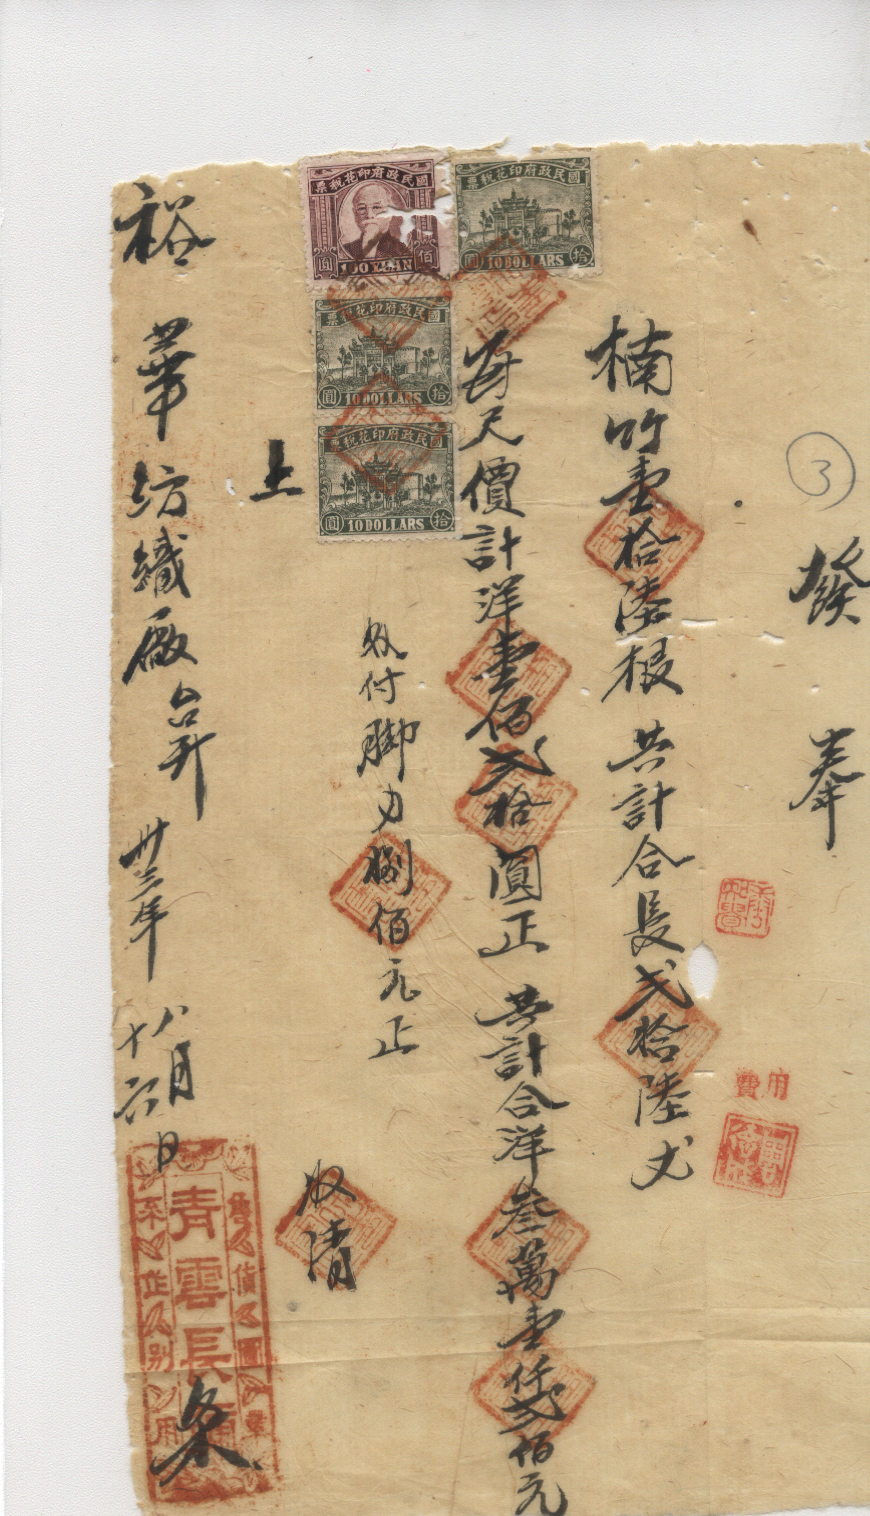 ③
發 奉
楠竹壹拾陸根 共計合長弍拾陸丈
每尺價計洋壹佰弍拾圓正 共計合洋叁萬壹仟弍佰元
收付脚力捌佰元正
收清
上
裕華紡織廠台升
卅三年八月十六日
青雲長
条
售貨圖章
不作別用
費用
國民政府印花稅票
圓 100 YUAN 佰
國民政府印花稅票
圓 10 DOLLARS 拾
國民政府印花稅票
圓 10 DOLLARS 拾
國民政府印花稅票
圓 10 DOLLARS 拾